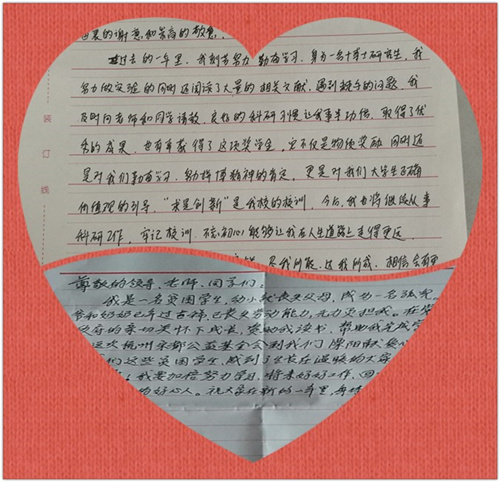 的谢意和崇高的敬意。
过去的一年里，我刻苦努力，勤奋学习，身为一名博士研究生，我
努力做实验的同时还阅读了大量的相关文献，遇到棘手的问题，我
及时向老师和同学请教，良好的科研习惯让我事半功倍，取得了优
秀的成果，也有幸获得了这项奖学金，它不仅是物质奖励，同时还
是对我们勤奋学习、勤奋精神的肯定，更是对我们大学生正确
价值观的引导，“求是创新”是我校的校训，今后，我也将继续从事
科研工作，牢记校训，不忘初心，能够让我在人生道路上走得更远
尽我所能，达我所成，相信会有
装订线
尊敬的领导、老师、同学们：
我是一名贫困学生，幼小就丧失父母，成为一名孤儿，
爷和奶奶已年过古稀，已丧失劳动能力，无力更担我。在党
政府的亲切关怀下成长，资助我读书，帮助我完成学
这次杭州宋都公益基金会到我们溧阳
们这些贫困学生，感到了生长在温暖的大家
我要加倍努力学习，将来好好工作，回
好心人。祝大家在新的一年里，